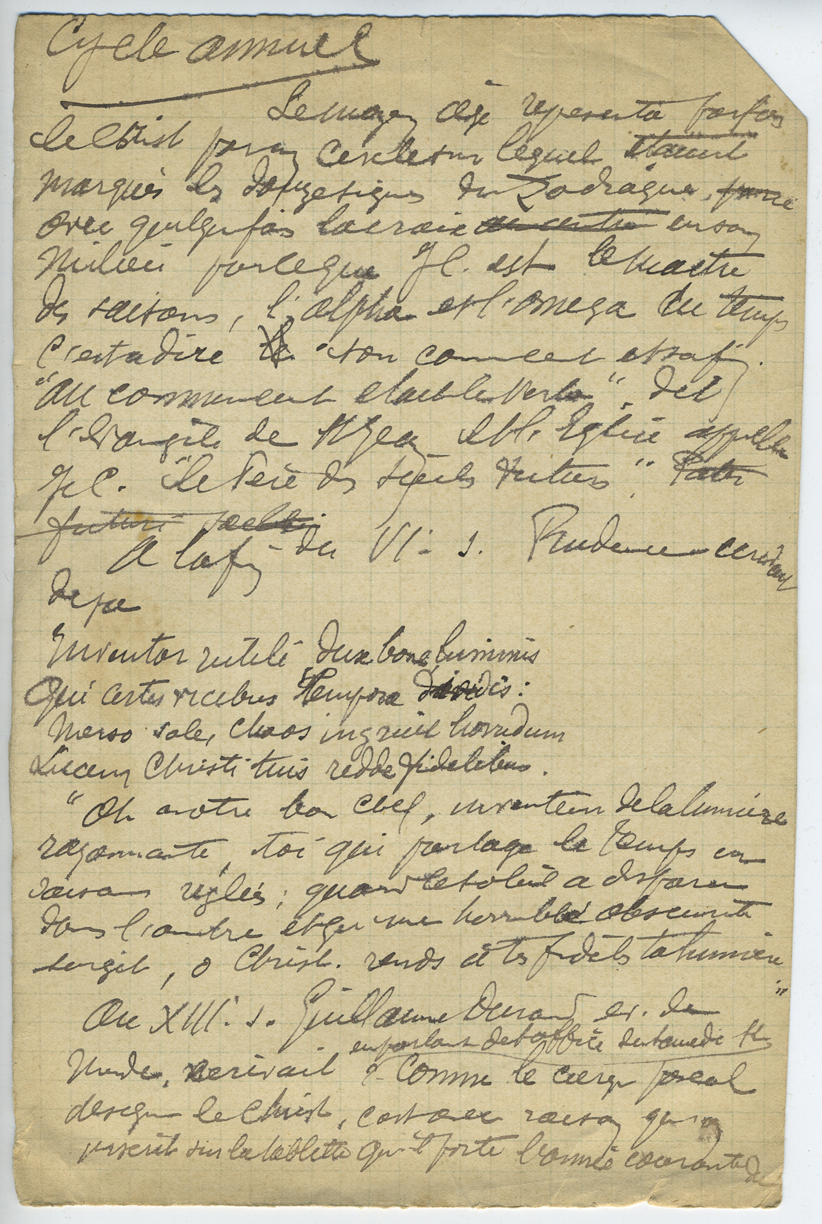 Cycle annuel
Le moyen âge representa parfois
le Christ par un cercle sur lequel étaient
marqués les douze signes du Zodiaque,
avec quelquefois la croix au centre en son
milieu parceque J.C. est le maitre
des saisons, l'alpha et l'omega du temps
c'est a dire son comencet et sa fin.
"Au commencent etait le Verbe", dit
l'évangile de St Jean et l'Eglise appelle
J.C. "le Père des siècles futurs". Pater
futuri saeculi
A la fin du VI. s. Prudence
deja
Inventor rutili, dux bone, luminis
Qui certis vicibus tempora dividis:
Merso sole, chaos ingruit horridum
Lucem Christi tuis redde fidelibus.
"Oh notre bon chef, inventeur de la lumière
rayonnante, toi qui partage le temps en
saisons réglées; quand le soleil a disparu
dans l'ombre et qu'une horrible obscurité
surgit, o Christ. rends à tes fidèls ta lumière"
Au XIII. s. Guillaume Durand, ev. de
en parlant de l'office du samedi St
Mende, écrivait : Comme le cierge pascal
designe le Christ, c'est avec raison qu'on
inscrit sur la tablette qu'il porte l'année courante de